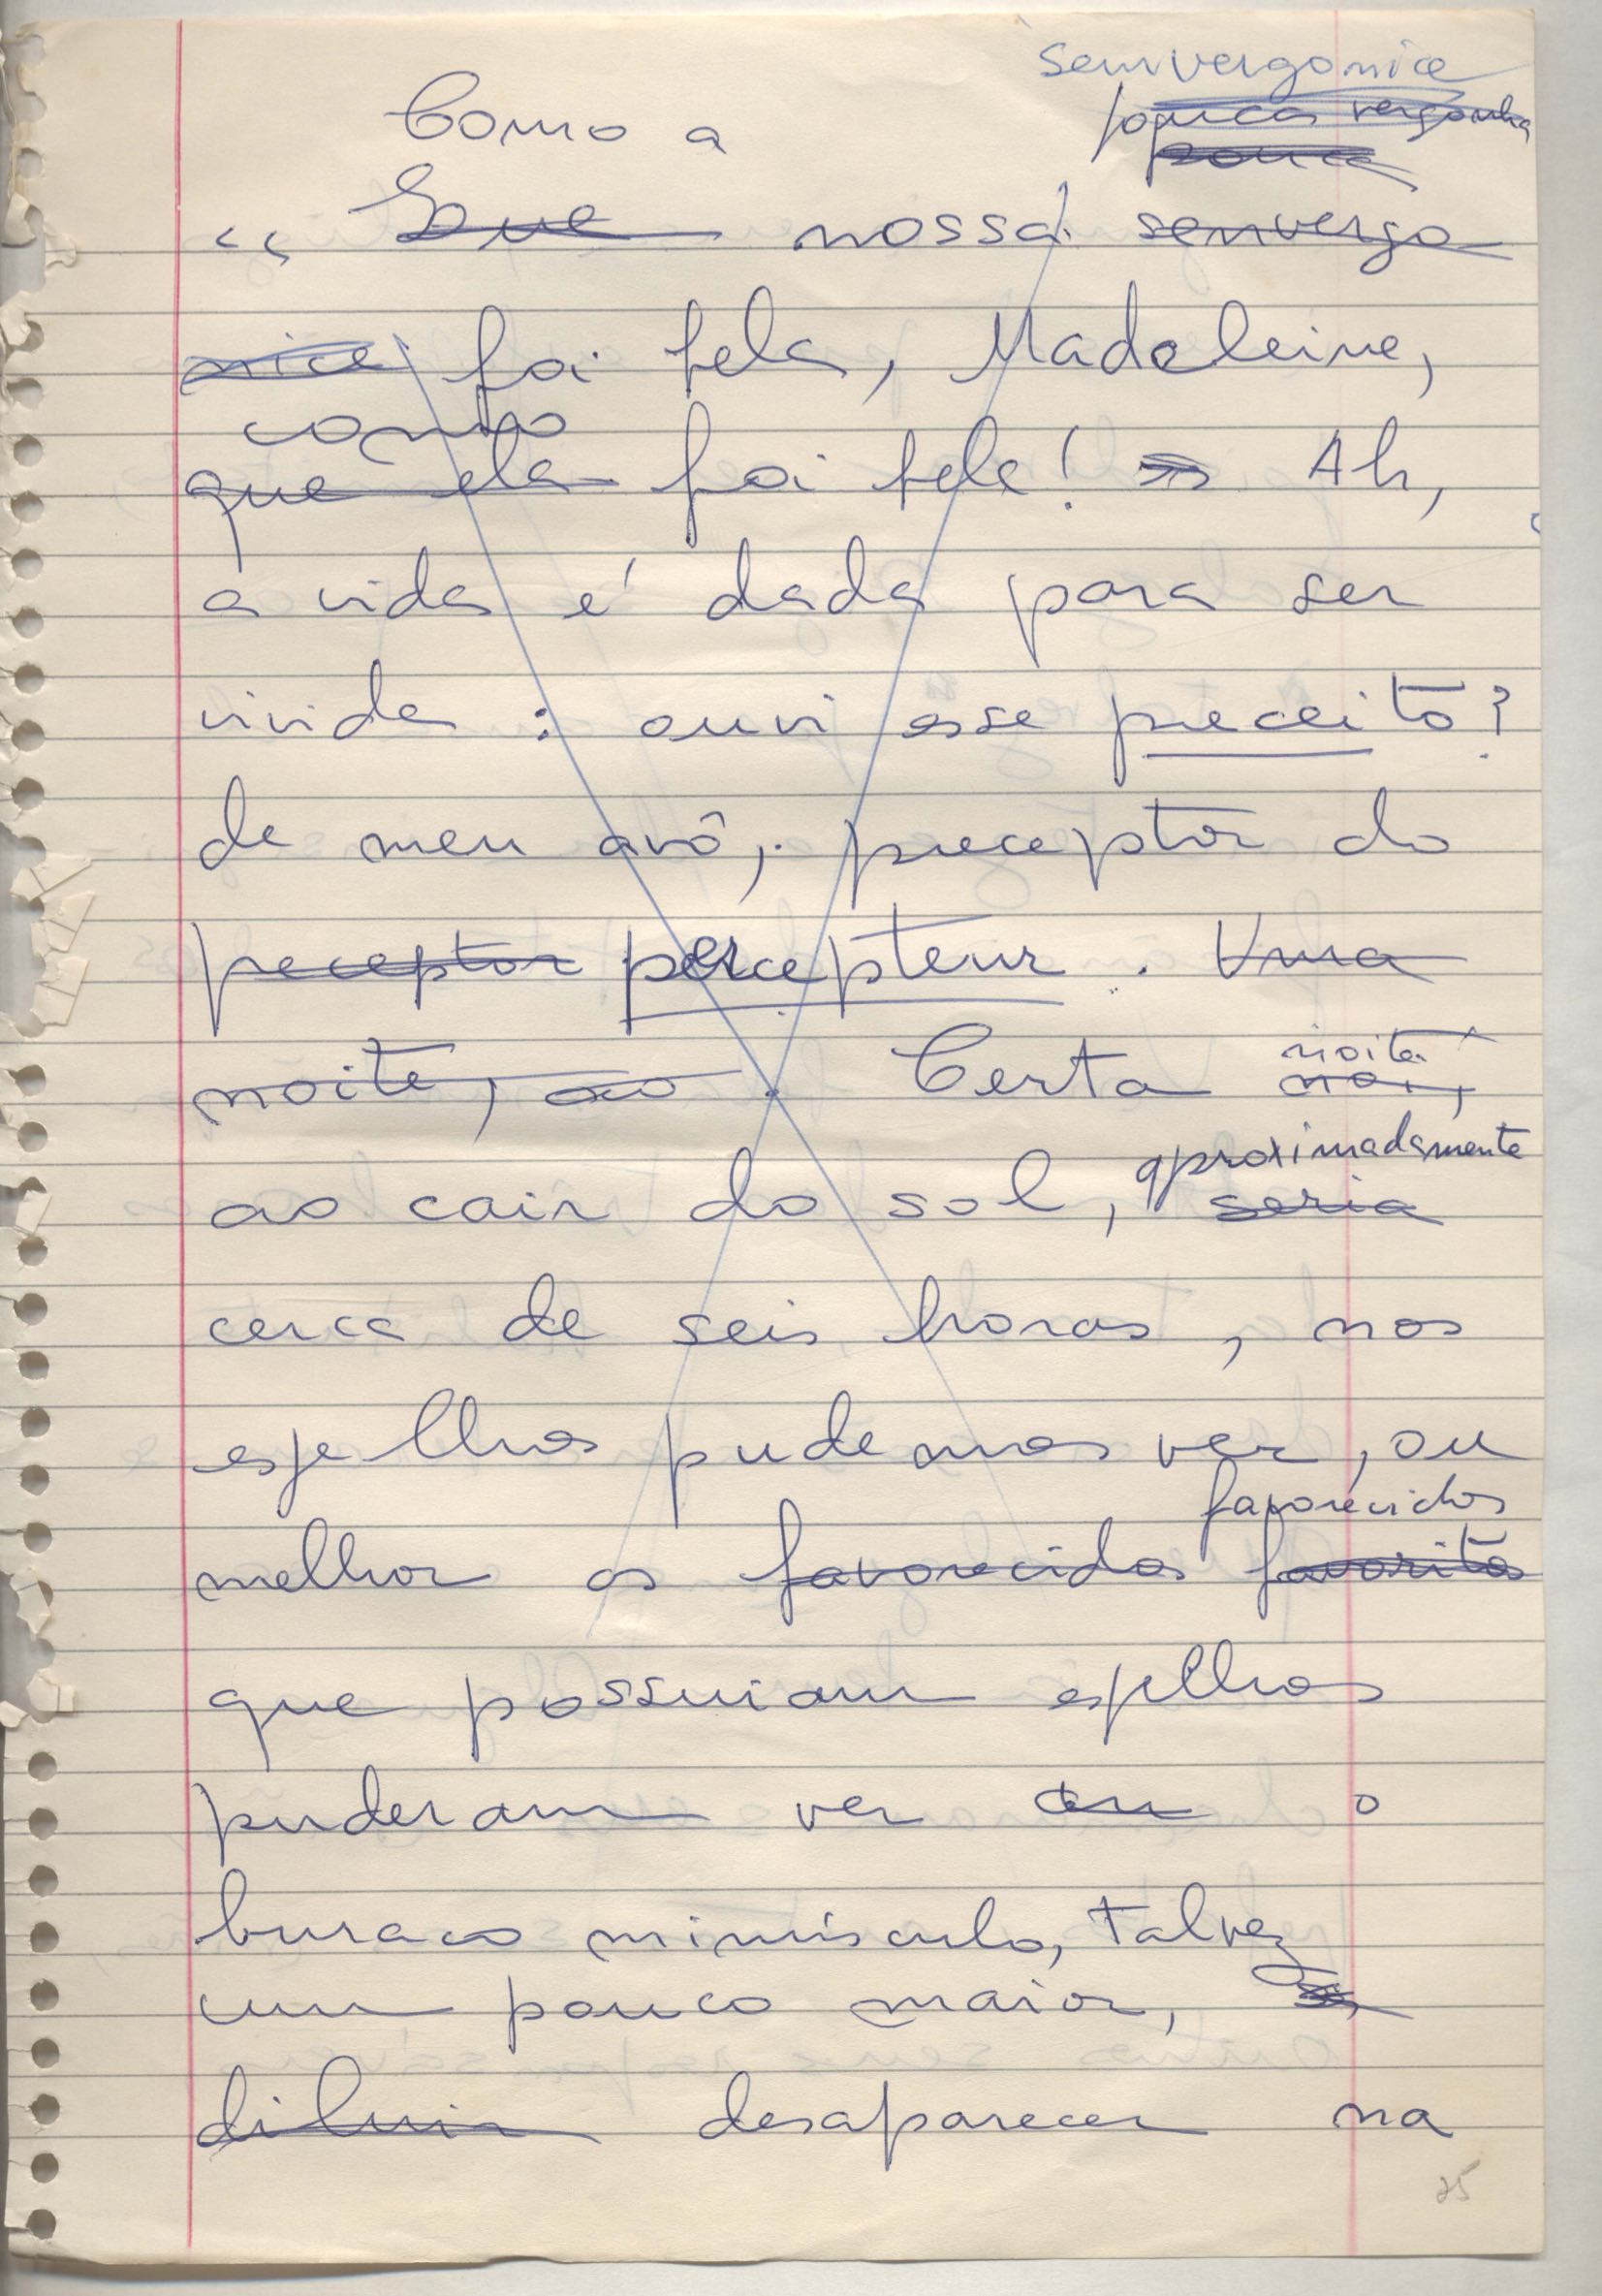 semvergonice
Como a pouca vergonha
pouca
“ Que nossa senvergo
nice foi fela, Madeleine,
como
que ela foi fela! Ah,
a vida é dada para ser
vivida : ouvi esse preceito?
de meu avô, preceptor do
preceptor percepteur. Uma
noite, ao. Certa noi,
noite
aproximadamente
ao cair do sol, seria
cerca de seis horas, nos
espelhos pudemos ver, ou
favorecidos
melhor os favorecidos favoritos
que possuiam espelhos
puderam ver o
buraco minúsculo, talvez
um pouco maior,
diluir desaparecer na
25